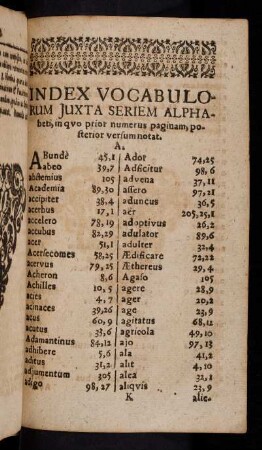 INDEX VOCABULO-
RUM JUXTA SERIEM ALPHA-
beti, in qvo prior numerus paginam, po-
sterior versum notat.
A.
ABundè 45,1
abeo 39,7
abstemius 105
Academia 89,30
accipiter 38,4
acerbus 17,1
accelero 78,19
accubus 82,29
acer 51,1
Acersecomes 58,25
acervus 79,25
Acheron 8,6
Achilles 10,5
acies 4,7
acinaces 39,26
actus 60,9
acutus 33,6
Adamantinus 84,12
adhibere 5,6
aditus 31,2
adjumentum 305
adigo 98,27
Ador 74,25
Adscitur 98,6
advena 37,11
assero 97,21
aduncus 36,5
aër 205,25,1
adoptivus 26,2
adulator 89,6
adulter 32,4
Ædificare 72,22
Æthereus 29,4
Agaso 105
agere 28,9
ager 20,2
age 23,9
agitatus 68,12
agricola 49,10
ajo 97,13
ala 41,2
alit 4,10
alea 32,1
aliqvis 23,9
K alic-